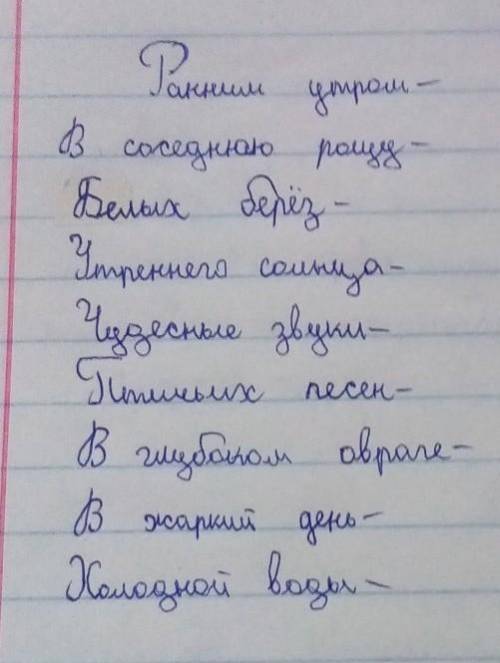 Ранним утром –
В соседнюю рощу –
Белых берёз –
Утреннего солнца –
Чудесные звуки –
Птичьих песен –
В глубоком овраге –
В жаркий день –
Холодной воды –